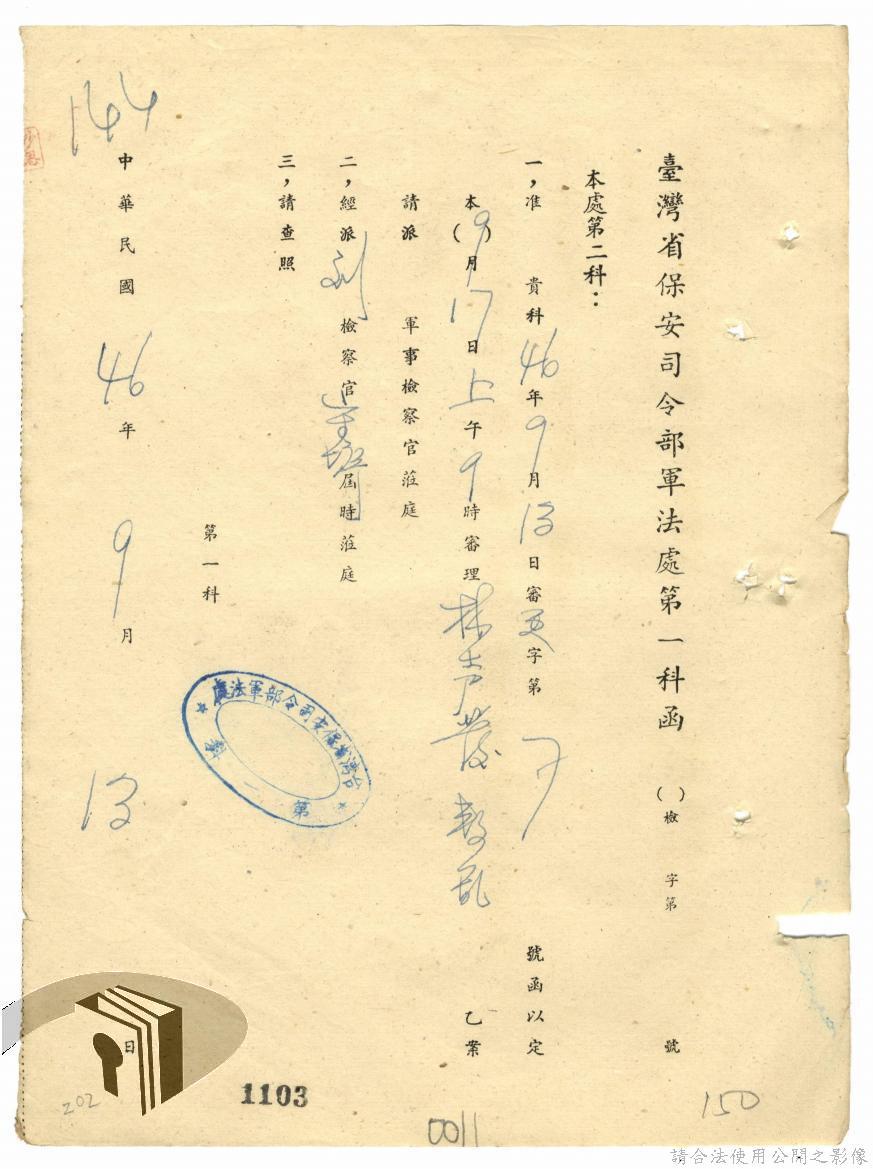 臺灣省保安司令部軍法處第一科函 ( )檢 字第 號
本處第二科：
一，准 貴科46年9月13日審更字第 號函以定
本(9)月17日上午9時審理林 發叛亂乙案
請派 軍事檢察官蒞庭
二，經派劉檢察官 屆時蒞庭
三，請查照
第一科
台灣省保安司令部軍法處
第一
中華民國46年9月13日
144
1103
0011
150
202
請合法使用公開之影像